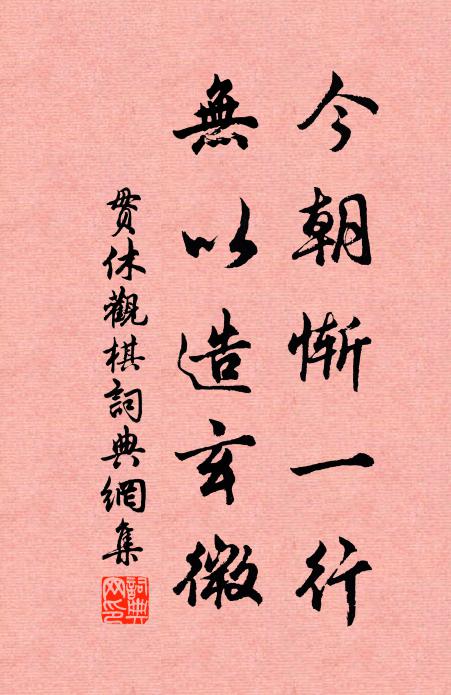 今朝慚一行
無以造玄微
貫休觀棋詞典網集
詞典
网印